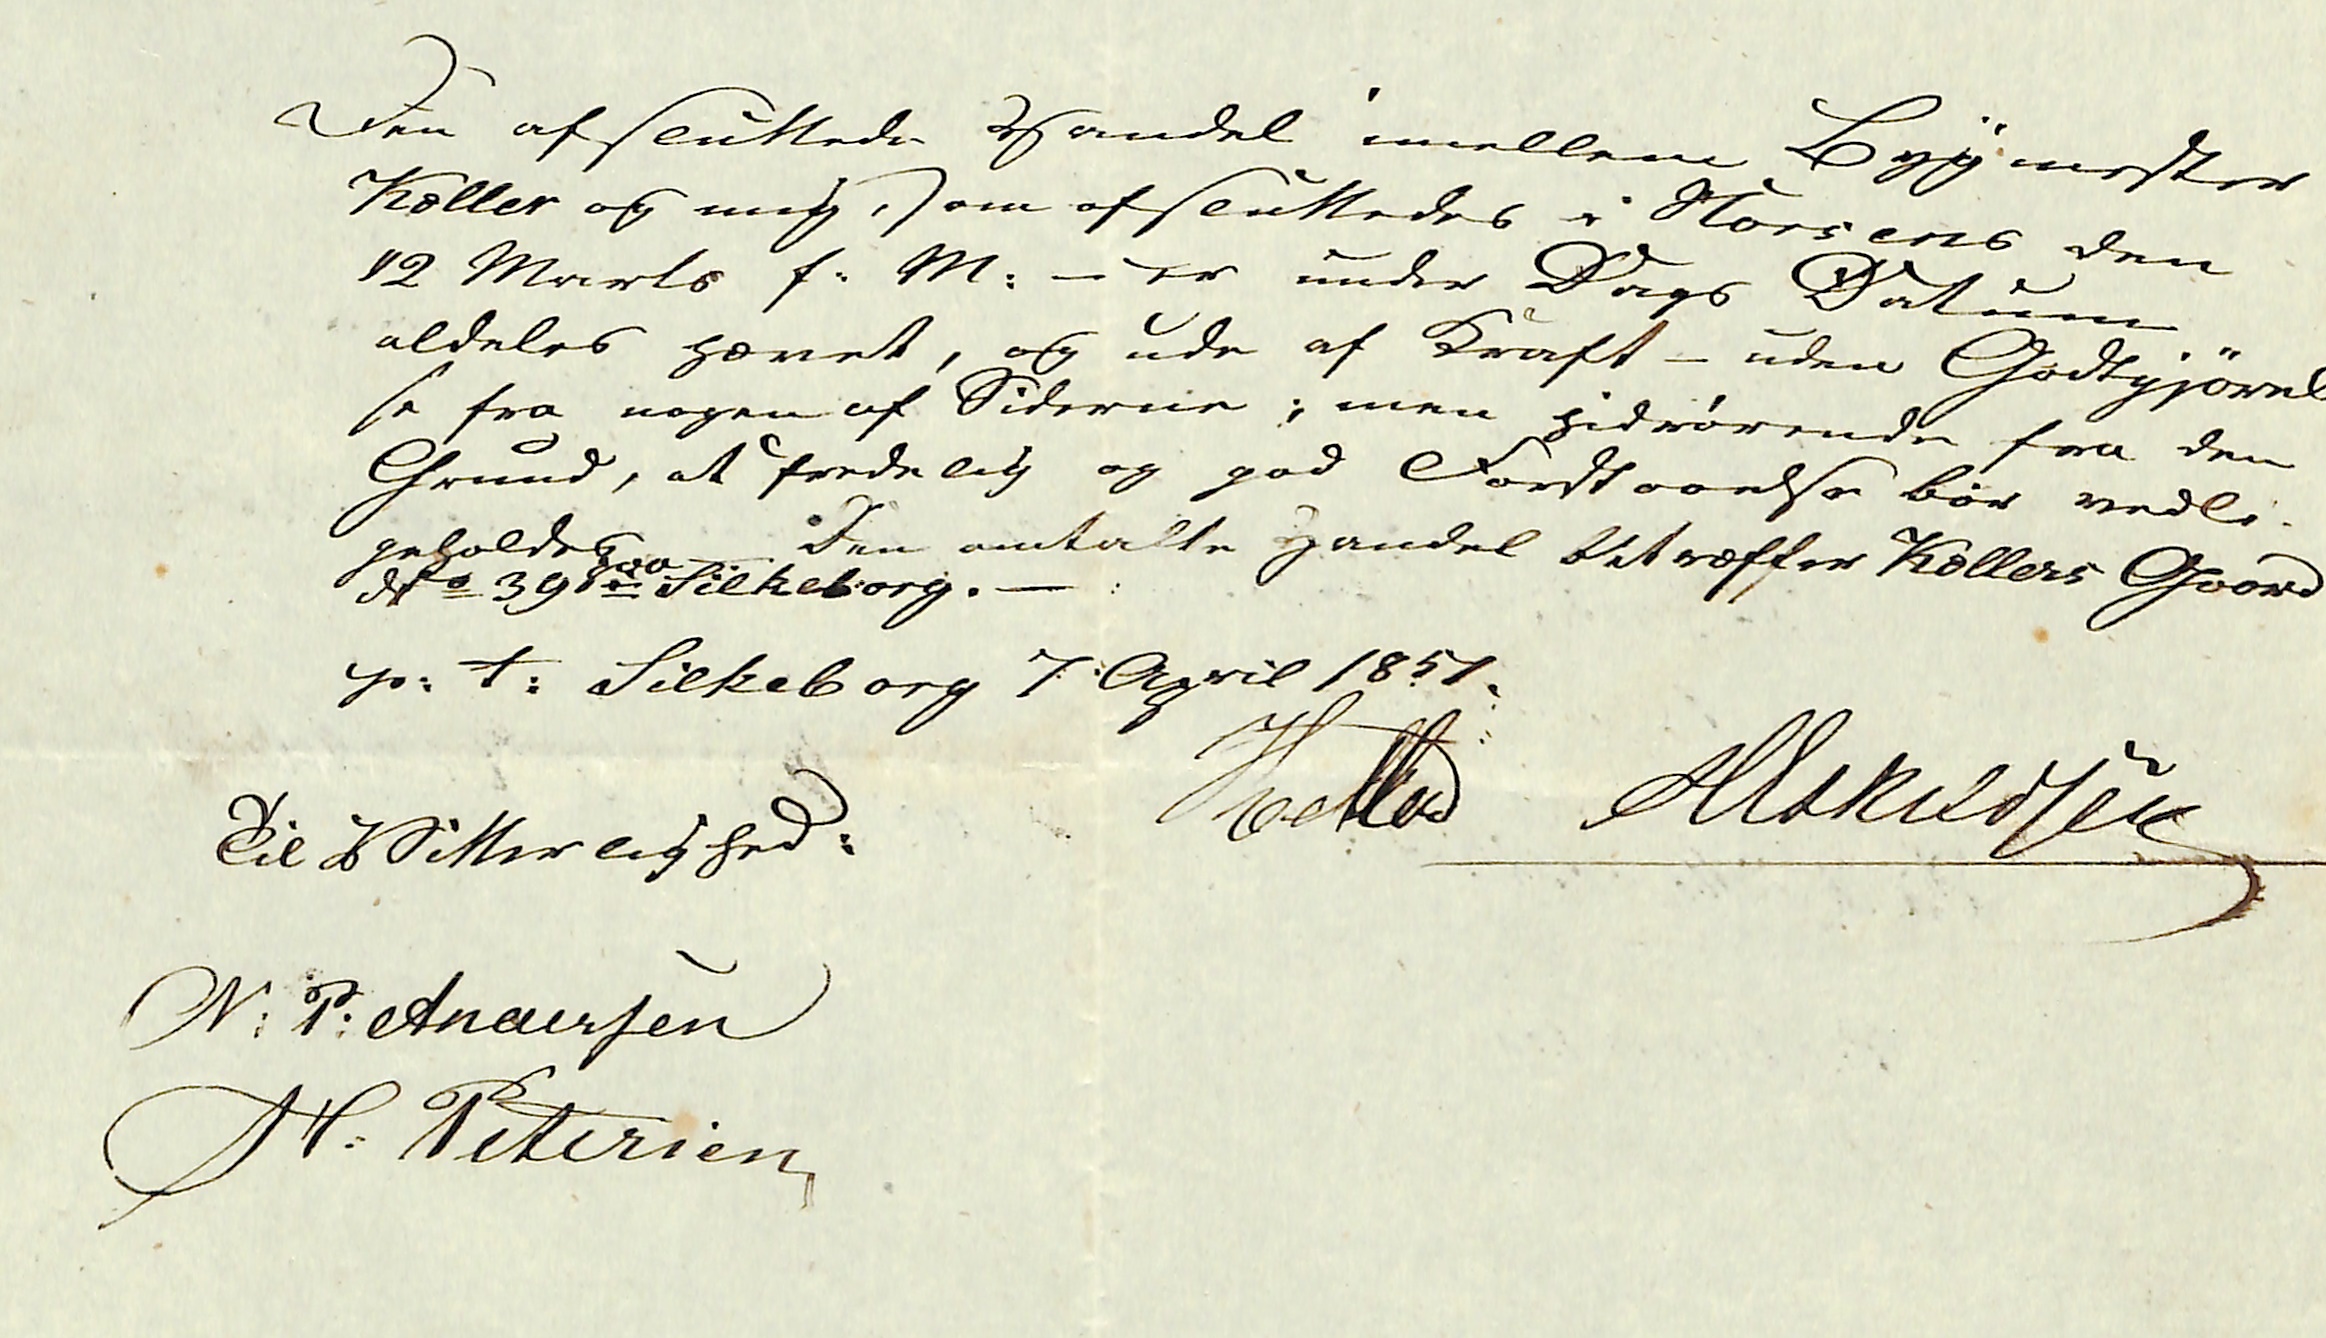 Den afsluttede Handel imellem Bygmester
Køller og mig, som afsluttedes i Horsens den
12 Marts f: M: – er under Dags Datum
aldeles hævet, og ude af Kraft – uden Godtgjörel
se fra nogen af Siderne; men hidrörende fra den
Grund, at fredelig og god Forstaaelse bör vedli-
geholdes – Den omtalte Handel betræffer Køllers Gaard
No 39 paa Silkeborg. –
p: t: Silkeborg 7 April 1851.
Til Vitterlighed:
N: P: Andersen
H. Petersen